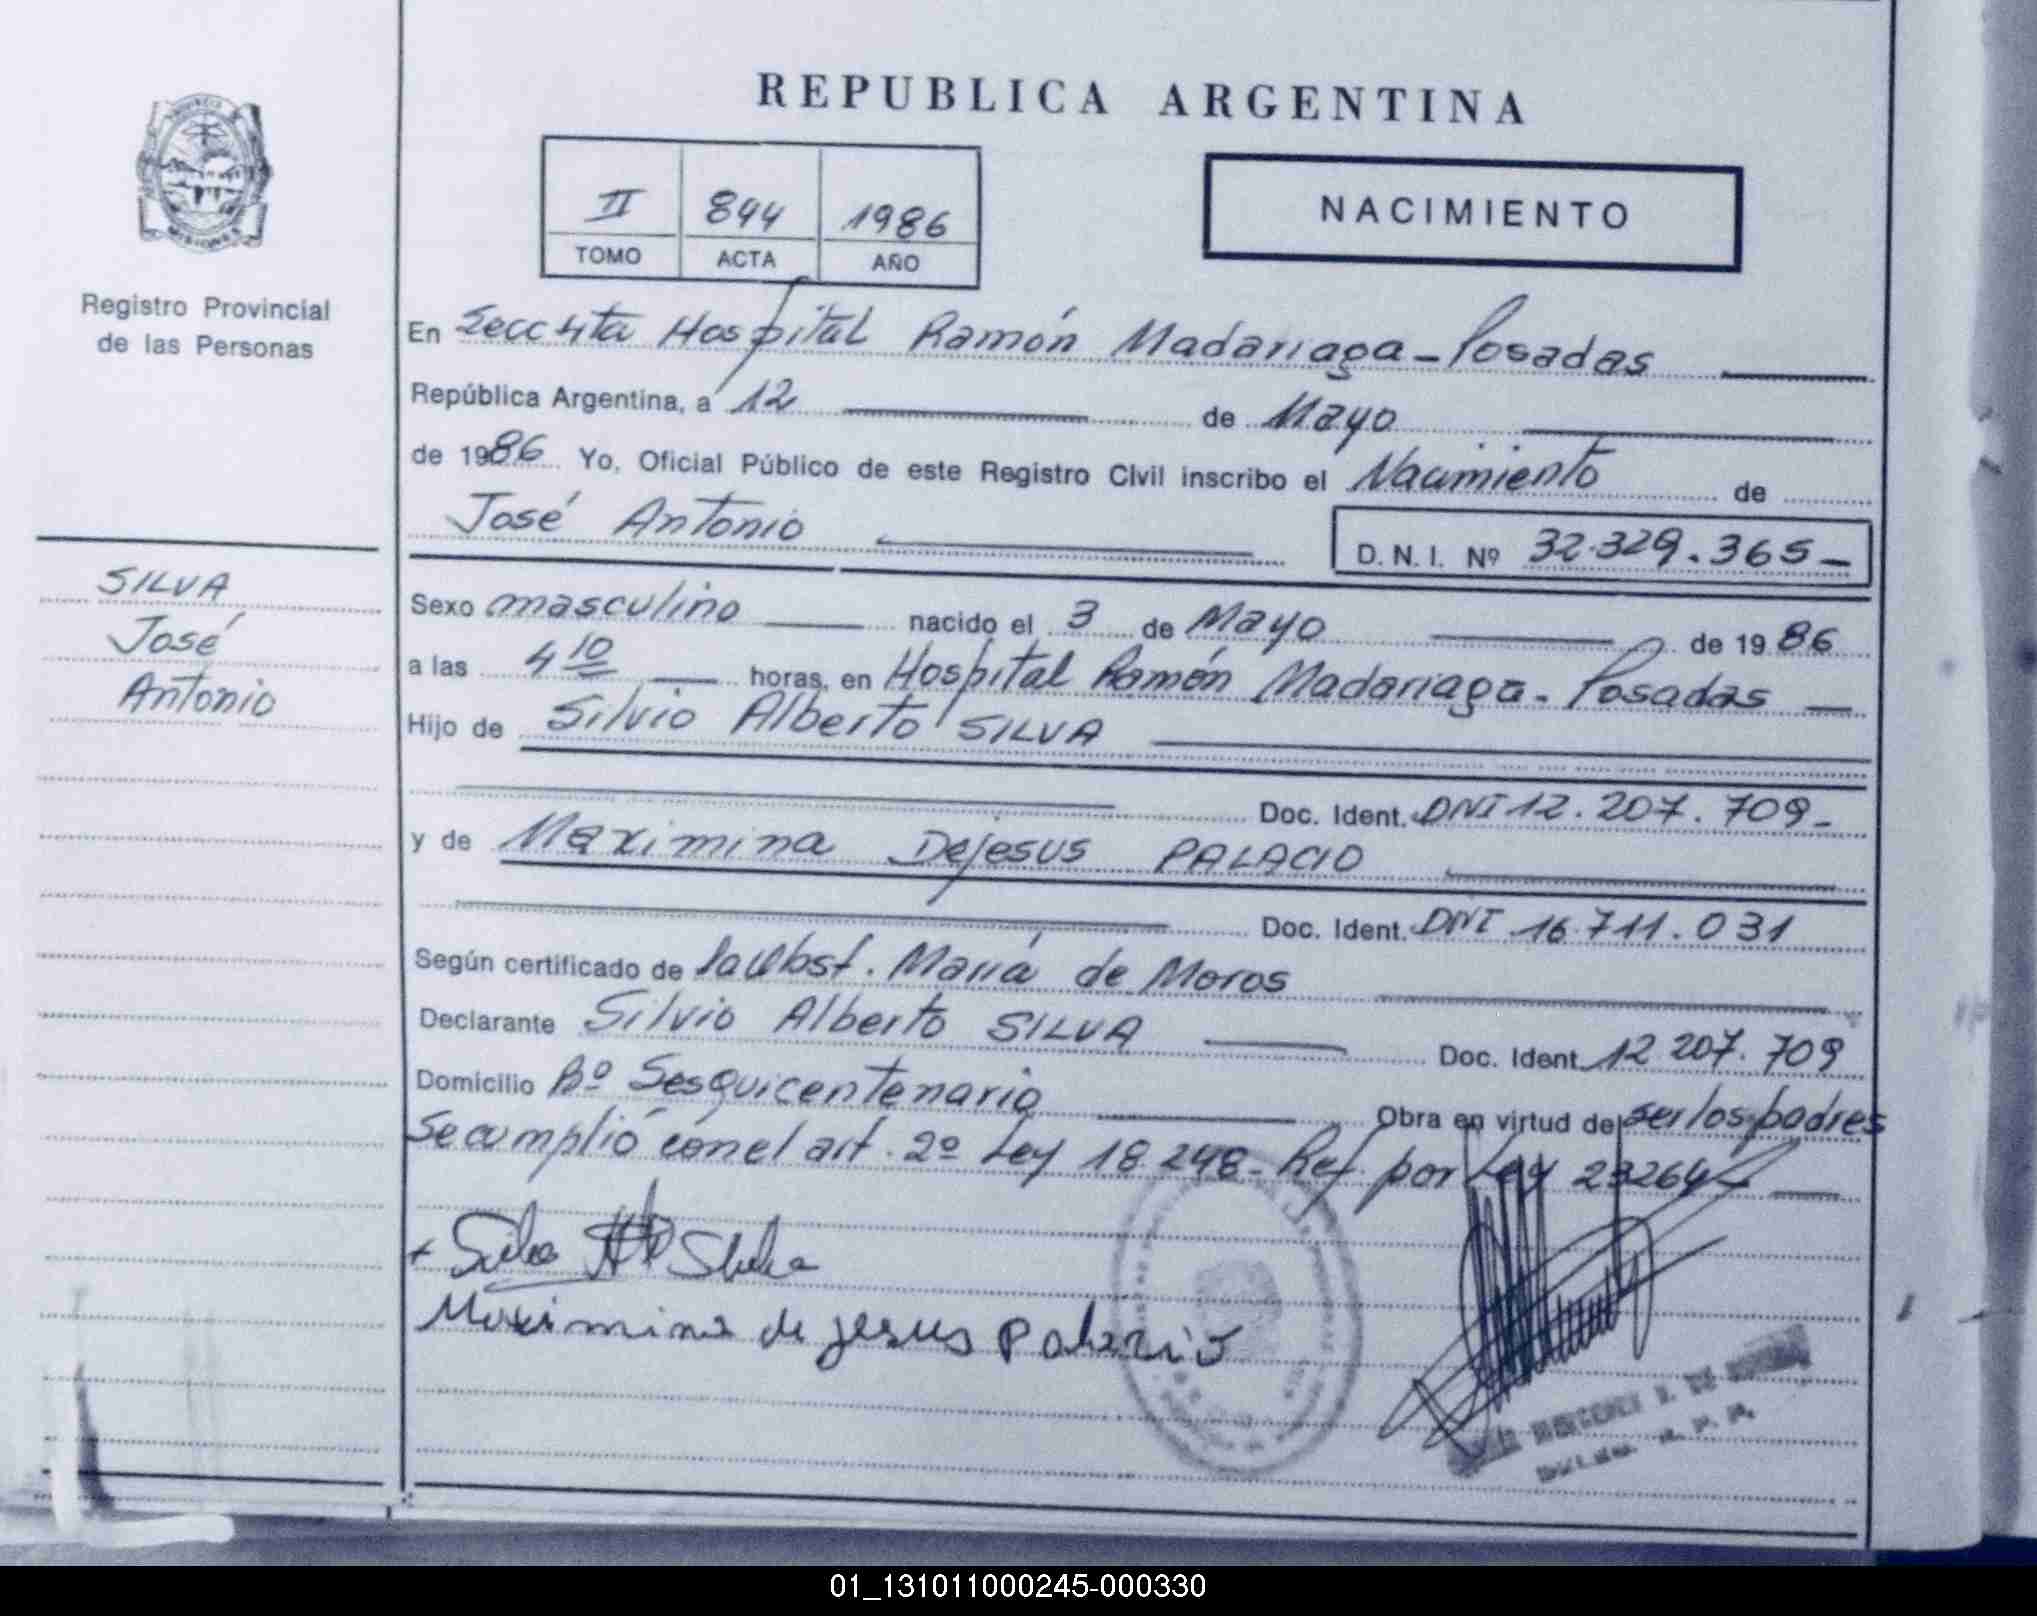 REPUBLICA ARGENTINA
II 844 1986
TOMO ACTA AÑO
NACIMIENTO
MISIONES
Registro Provincial
de las Personas
SILVA
José
Antonio
En Secc 4ta Hospital Ramón Madariaga - Posadas
República Argentina, a 12 de Mayo
de 1986 Yo, Oficial Público de este Registro Civil inscribo el Nacimiento de
José Antonio D. N. I. Nº 32.329.365-
Sexo masculino nacido el 3 de Mayo de 1986
a las 4 10 horas, en Hospital Ramón Madariaga - Posadas
Hijo de Silvio Alberto SILVA
Doc. Ident. DNI 12.207.709-
y de Maximina Dejesus PALACIO
Doc. Ident. DNI 16.711.031
Según certificado de la Obst. María de Moros
Declarante Silvio Alberto SILVA Doc. Ident. 12 207.709
Domicilio Bº Sesquicentenario Obra en virtud de ser los padres
Se cumplió con el art. 2º Ley 18.248- Ref. por Ley 23264
Maximina de jesus Palacio
01_131011000245-000330